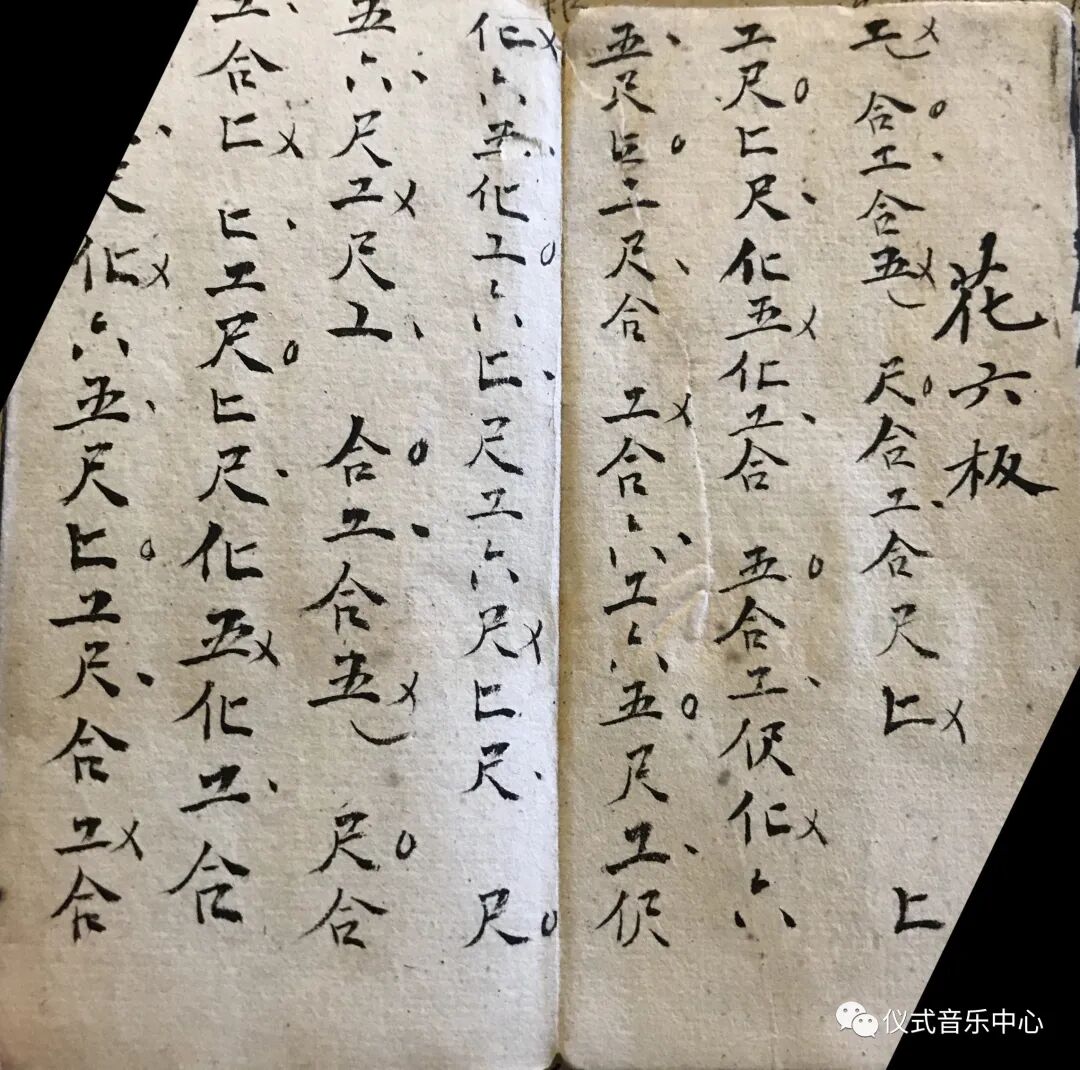 花六板
工合工合五 尺合工合尺上 上
工尺上尺仩五仩工合 五合工伬仩六
五尺上工尺合 工合六工六五尺工伬
仩六五仩工六上尺工六尺上尺 尺
五六尺工尺工 合工合五 尺合
工合上 上工尺上尺仩五仩工合
仩六五尺上工尺合工合
仪式音乐中心